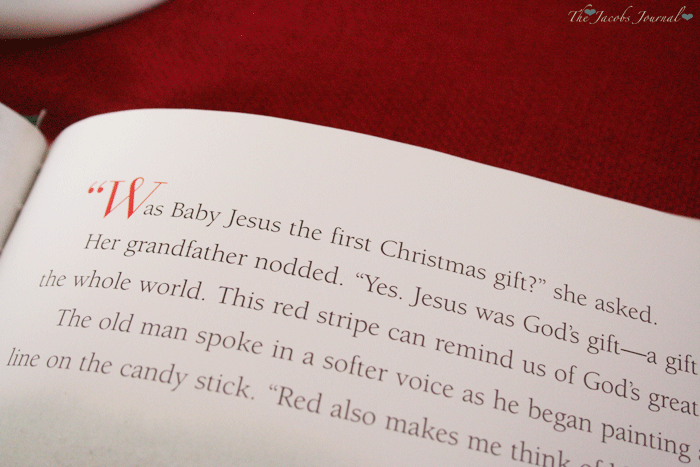 The Jacobs Journal
“Was Baby Jesus the first Christmas gift?” she asked.
Her grandfather nodded. “Yes. Jesus was God’s gift—a gift
the whole world. This red stripe can remind us of God’s great
The old man spoke in a softer voice as he began painting
line on the candy stick. “Red also makes me think of